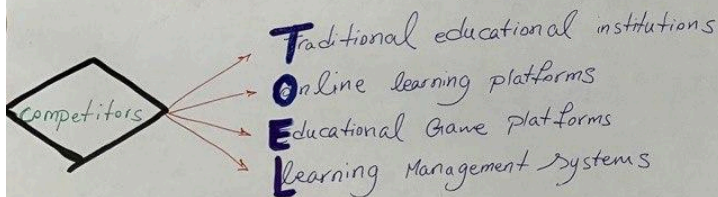 Traditional educational institutions
Online learning platforms
competitors
Educational Game platforms
Learning Management systems